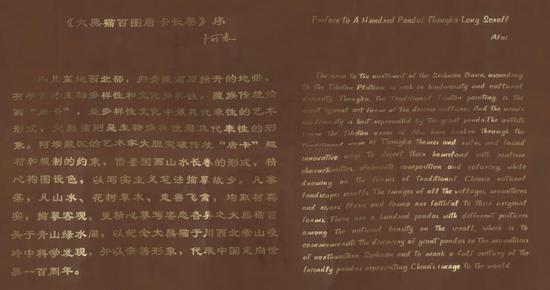 《大熊猫百图唐卡长卷》序
阿来
四川盆地西北部，向青藏高原抬升的地带，
有丰富的生物多样性和文化多样性。藏族传统绘
画“唐卡”，是多样性文化中最具代表性的艺术
形式，大熊猫则是生物多样性最具代表性的形
象。阿坝藏区的艺术家大胆突破传统“唐卡”题
材和规制的约束，借鉴国画山水长卷的形式，精
心构图设色，以写实主义笔法描摹故乡。凡寨
落，凡山水、花树草木、走兽飞禽，均取材真
实，描摹客观。更精心摹写姿态各异之大熊猫百
头于青山绿水间，以纪念大熊猫于川西北崇山峻
岭中科学发现，并以亲善形象，代表中国走向世
界一百周年。
Preface To A Hundred Pandas Thangka Long Scroll
Alai
The area to the northwest of the Sichuan Basin, ascending
to the Tibetan Plateau, is rich in biodiversity and cultural
diversity. Thangka, the traditional Tibetan painting, is the
most representative art form of the diverse cultures. And the area's
biodiversity is best represented by the giant panda. The artists
from the Tibetan areas of Aba have broken through the
traditional ways of Thangka themes and rules, and found
innovative ways to depict their homeland with realistic
characteristics, elaborate composition and colouring, while
drawing on the forms of Traditional Chinese national
landscape scrolls. The images of all the villages, mountains
and rivers, flora and fauna are faithful to their original
forms. There are a hundred pandas with different positions
among the natural beauty on the scroll, which is to
commemorate the discovery of giant pandas in the mountains
of northwestern Sichuan and to mark a full century of the
friendly pandas representing China's image to the world.